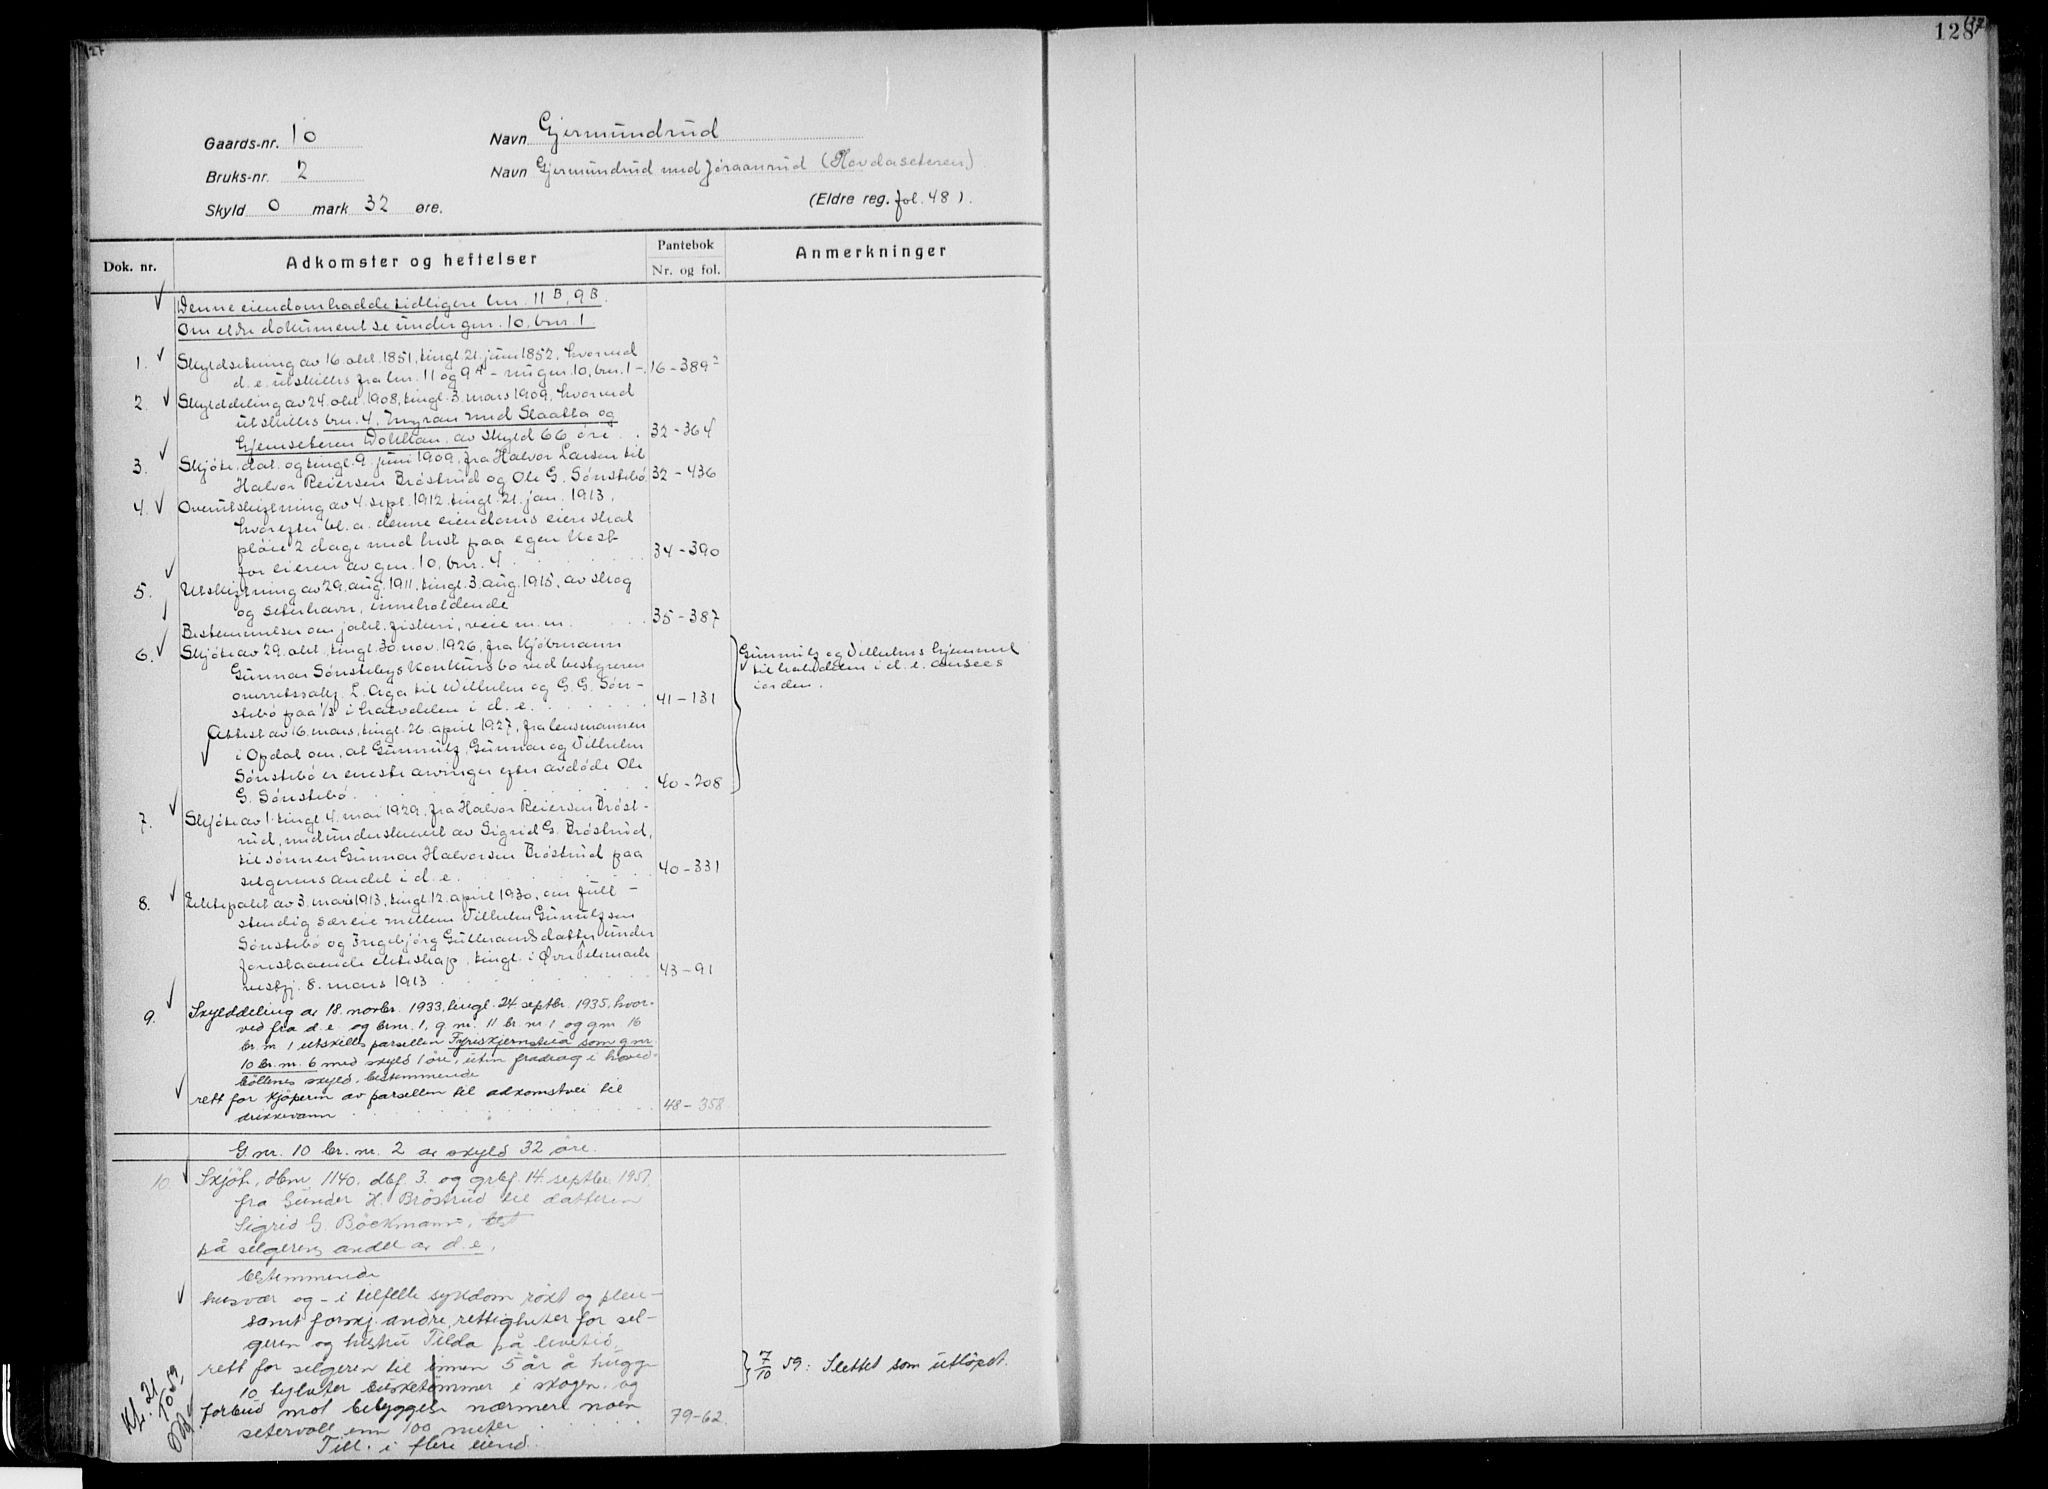 127
128
Gaards-nr. 10
Navn Gjermundrud
Bruks-nr. 2
Navn Gjermundrud med Jøraanrud (Hovdaseteren)
Skyld 0 mark 32 øre.
(Eldre reg. fol. 48).
Dok. nr.
Adkomster og heftelser
Pantebok
Nr. og fol.
Anmerkninger
Denne eiendom hadde tidligere lnr. 11 B, 9 B.
Om eldre dokument se under gnr. 10, bnr. 1
1. Skyldsetning av 16 okt. 1851, tingl. 21. juni 1852, hvorved
d. e. utskilles fra lnr. 11 og 9 A - nu gnr. 10, bnr. 1 -. 16-389²
2. Skylddeling av 24. okt. 1908, tingl. 3. mars 1909, hvorved
utskilles bnr. 4, Myran med Slaatta og
Hjemseteren Dokllan, av skyld 66 øre . . 32-364
3. Skjøte, dat. og tingl. 9. juni 1909, fra Halvor Larsen til
Halvor Reiersen Brøstrud og Ole G. Sønstebø 32-436
4. Overutskiftning av 4. sept. 1912, tingl. 21. jan. 1913,
hvorefter bl. a. denne eiendoms eier skal
pløie 2 dage med hest paa egen kost
for eieren av gnr. 10, bnr. 4 . . . 34-390
5. Utskiftning av 29. aug. 1911, tingl. 3. aug. 1915, av skog
og seterhavn, inneholdende
Bestemmelser om jakt, fiskeri, veie m. m. . . . 35-387
6. Skjøte av 29. okt., tingl. 30. nov. 1926, fra Kjøbmann
Gunnar Sønstebys Konkursbo ved bestyreren
overrettssakf. L. Aga til Wilhelm og G. G. Søn-
stebø paa 1/3 i halvdelen i d. e. . . . 41-131
Gunnulf og Vilhelms hjemmel
til halvdelen i d. e. ansees
i orden.
Attest av 16. mars, tingl. 26. april 1927, fra lensmannen
i Opdal om, at Gunnulf, Gunnar og Vilhelm
Sønstebø er eneste arvinger efter avdøde Ole
G. Sønstebø . . . 40-208
7. Skjøte av 1. tingl. 4. mai 1929, fra Halvor Reiersen Brøst-
rud, medunderskrevet av Sigrid G. Brøstrud,
til sønnen Gunnar Halvorsen Brøstrud paa
selgerens andel i d. e. . . . 40-331
8. Ektepakt av 3. mars 1913, tingl. 12. april 1930, om full-
stendig særeie mellem Vilhelm Gunulfsen
Sønstebø og Ingebjørg Gullerandsdatter under
forestaaende ekteskap, tingl. i Øvre Telemark
vestfj. 8. mars 1913 . . . 43-91
9. Skylddeling av 18. novbr. 1933, tingl. 24 septbr. 1935, hvor-
ved fra d. e. og brnr. 1, g nr. 11 br. nr 1 og gnr 16
br. nr. 1 utskilles parsellen Fyriskjernsliå som g nr.
10 br. nr. 6 med skyld 1 øre, uten fradrag i hoved-
bøllenes skyld, bestemmende
rett for kjøperen av parsellen til adkomstvei til
drikkevann . . . 48-358
G.nr. 10 br. nr. 2 av skyld 32 øre.
10 Skjøte, dbnr 1140, dbf. 3. og grbf. 14 septbr. 1951,
fra Gunder H. Brøstrud til datteren
Sigrid G. Bøckmann,
på selgerens andel av d. e.,
bestemmende
husvær og - i tilfelle sykdom røkt og pleie -
samt forskj. andre rettigheter for sel-
geren og hustru Tilda på levetid,
rett for selgeren til innen 5 år å hugge
10 tylvter bruksetømmer i skogen, og
7/10 59: Slettet som utløpet.
forbud mot bebyggelse nærmere noen
setervoll enn 100 meter . . . 79-62.
Till. i flere eiend.
Kf. 21/10 59